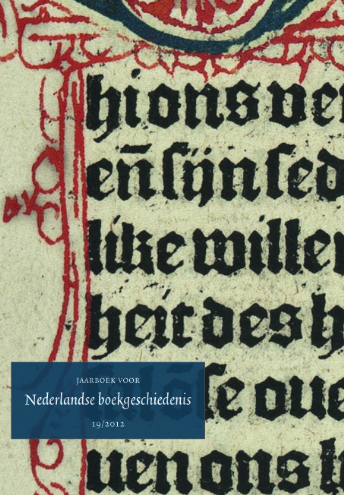 hions ve
en̄ sijn sed
like wille
heit des h
se oue
uen ons
JAARBOEK VOOR
Nederlandse boekgeschiedenis
19/2012